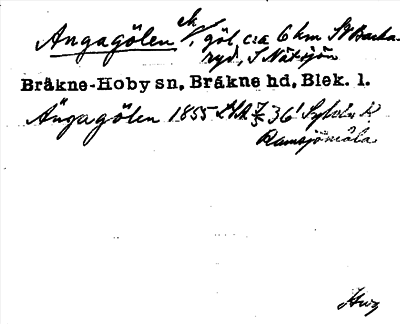 Angagölen sk. göl, c:a 6 km SV Backa-
ryd, S Nätsjön
Bräkne-Hoby sn, Bräkne hd, Blek. l.
Ängagölen 1855 LSA 36
Ramsjömåla